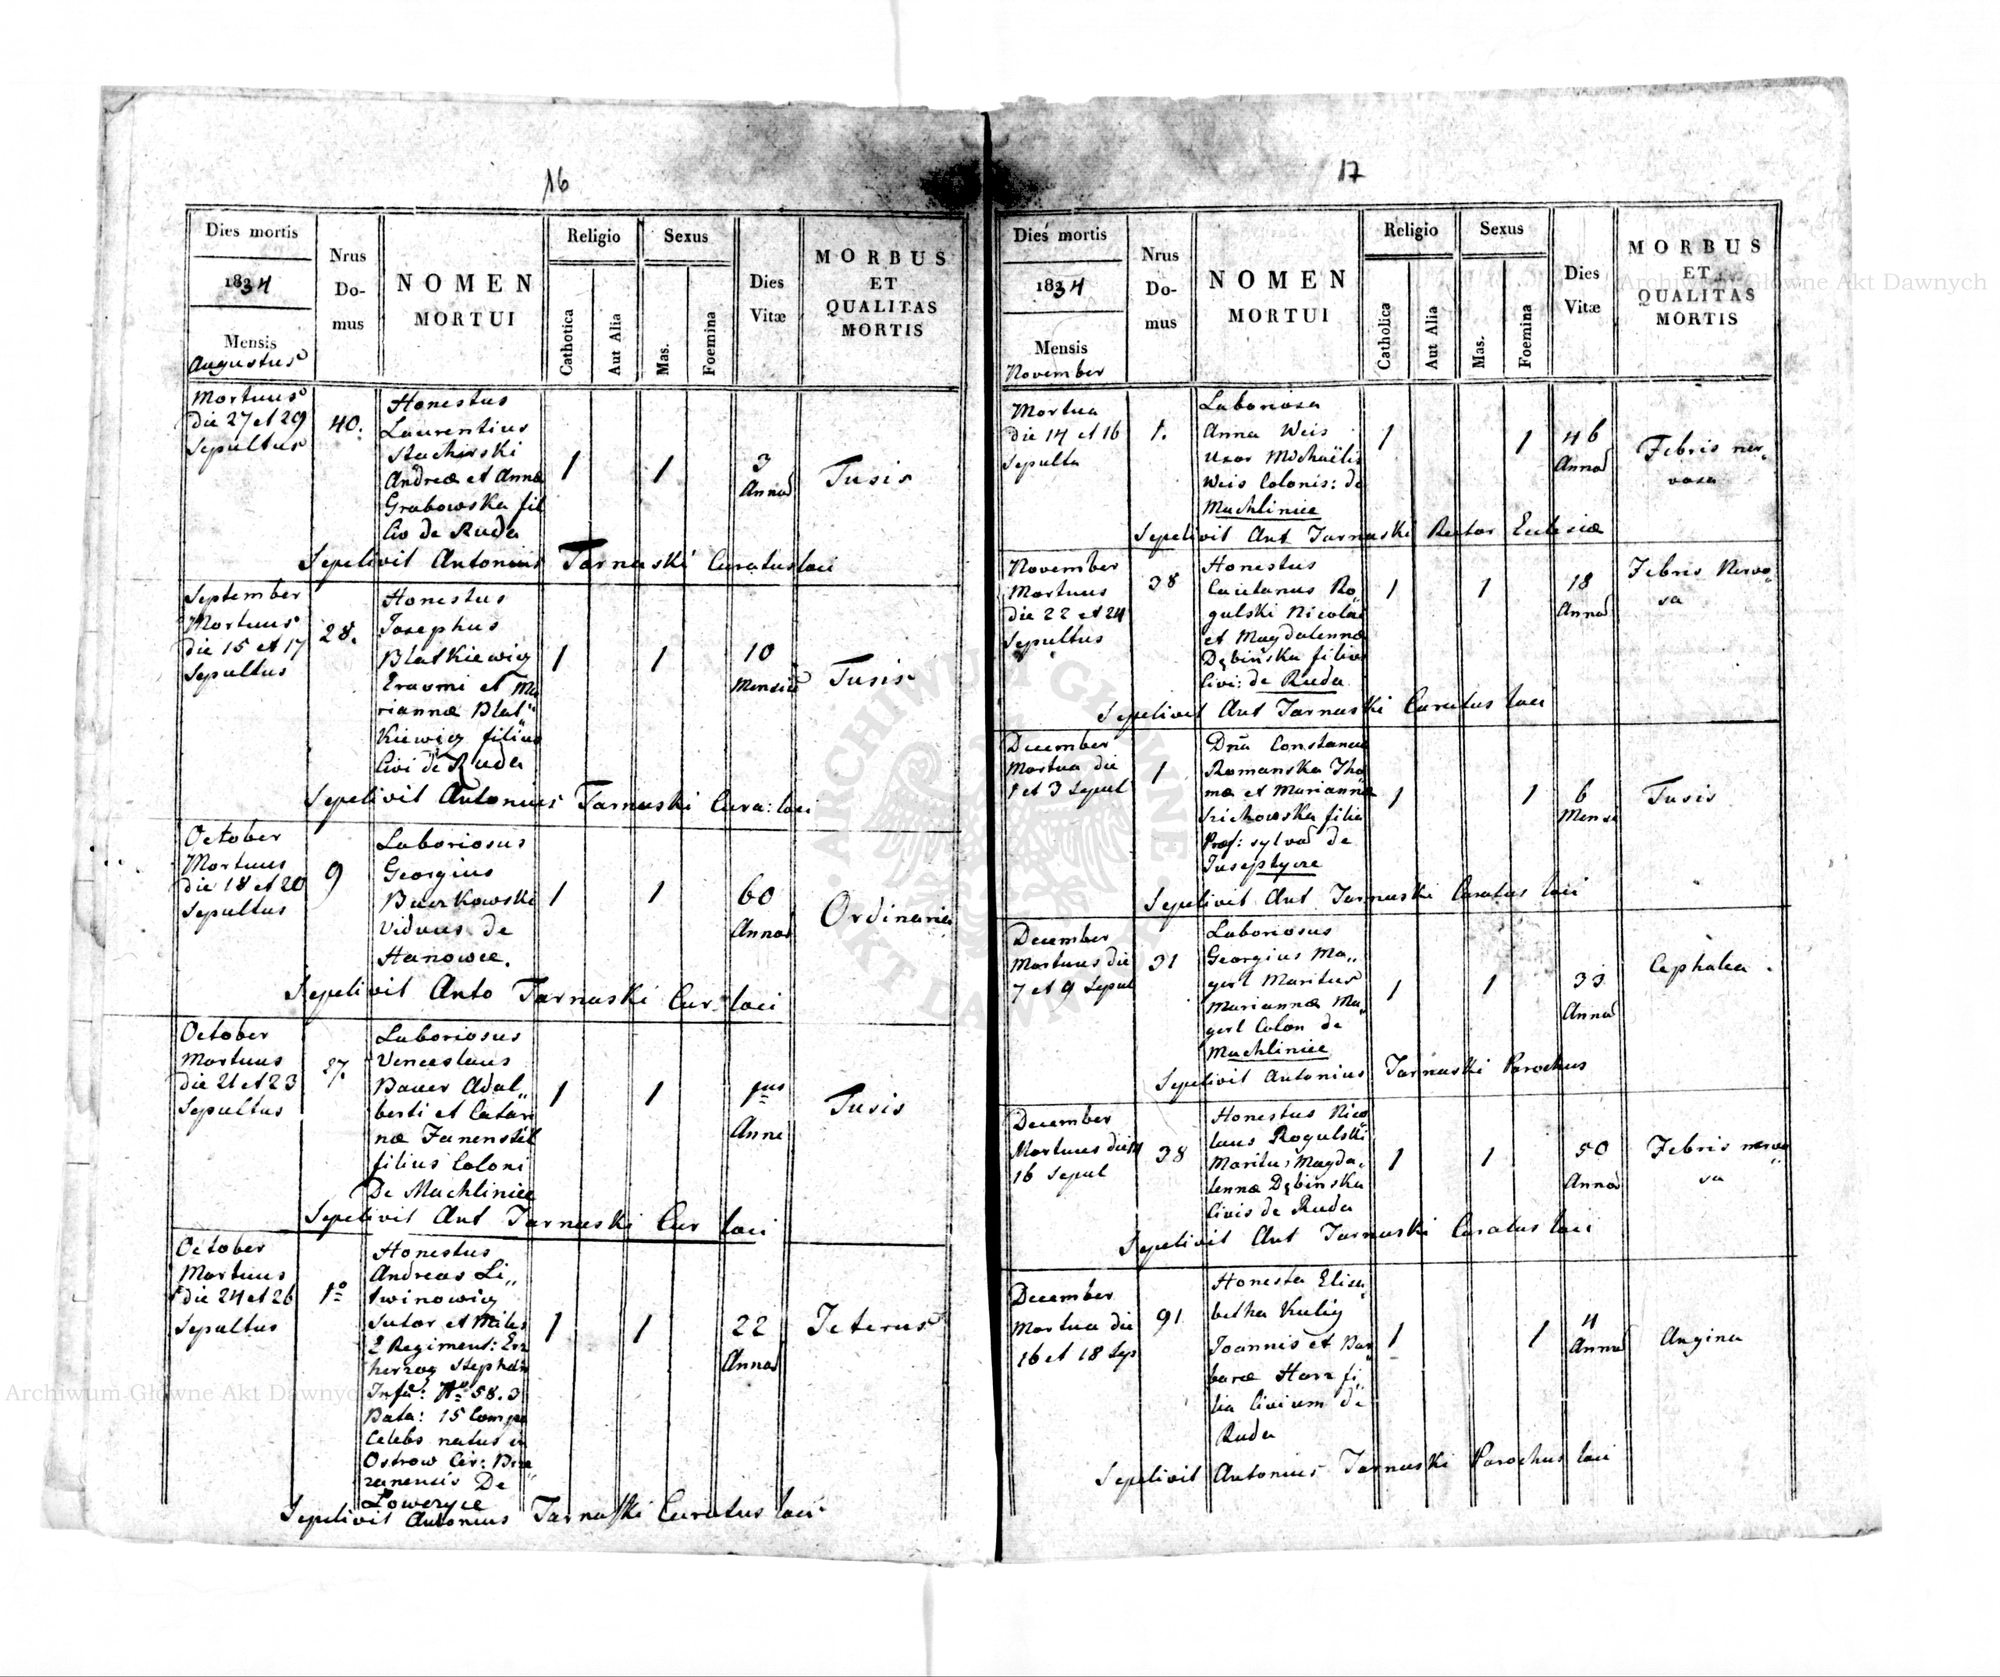 16
Dies mortis
1834
Mensis
Augustus
Nrus
Do-
mus
NOMEN
MORTUI
Religio
Catholica
Aut Alia
Sexus
Mas.
Foemina
Dies
Vitæ
MORBUS
ET
QUALITAS
MORTIS
Mortuus
die 27 et 29
Sepultus
40.
Honestus
Laurentius
Stachirski
Andreæ et Annæ
Grabowska fil
Civ de Ruda
1
1
3
Annos
Tusis
Sepelivit Antonius Tarnaski Curatus loci
September
Mortuus
die 15 et 17
Sepultus
28.
Honestus
Josephus
Blatkiewicz
Erasmi et Ma
riannæ Blat„
kiewicz filius
Civi de Ruda
1
1
10
Mensis
Tusis
Sepelivit Antonius Tarnaski Cura: loci
October
Mortuus
die 18 et 20
Sepultus
9
Laboriosus
Georgius
Buczkowski
Viduus de
Hanowce.
1
1
60
Annos
Ordinaria
Sepelivit Anto Tarnaski Cur. loci
October
Mortuus
die 21 et 23
Sepultus
27.
Laboriosus
Venceslaus
Bauer Adal„
berti et Catari
næ
filius Coloni
De Machliniec
1
1
1us
Anni
Tusis
Sepelivit Ant Tarnaski Cur loci
October
Mortuus
die 24 et 26
Sepultus
1o
Honestus
Andreas Li„
twinowicz
Sutor et Miles
2 Regiment: Erz
herzog Stephan
Infa: No 58. 3
Bata: 15 Comp
Celebs natus in
Ostrow Cir: Brze
zanensis De
Lowczyce
1
1
22
Annos
Icterus
Sepelivit Antonius Tarnaski Curatus loci
17
Dies mortis
1834
Mensis
November
Nrus
Do-
mus
NOMEN
MORTUI
Religio
Catholica
Aut Alia
Sexus
Mas.
Foemina
Dies
Vitæ
MORBUS
ET
QUALITAS
MORTIS
Mortua
die 14 et 16
Sepulta
1.
Laboriosa
Anna Weis
Uxor Michaëlis
Weis Colonis: de
Machliniec
1
1
46
Annos
Febris ner„
vosa
Sepelivit Ant Tarnaski Rector Eclesiæ
November
Mortuus
die 22 et 24
Sepultus
38
Honestus
Caietanus Ro„
gulski Nicolai
et Magdalennæ
Dębińska filius
Civi: de Ruda
1
1
18
Annos
Febris Nervo„
sa
Sepelivit Ant Tarnaski Curatus loci
December
Mortua die
1 et 3 Sepul
1
Dña Constancia
Romanska Tho
mæ et Mariannæ
filia
Præf: sylvas de
1
1
6
Mensi
Tusis
Sepelivit Ant Tarnaski Curatus loci
December
Mortuus die
7 et 9 Sepul
31
Laboriosus
Georgius Ma„
gerl Maritus
Mariannæ Ma„
gerl Colon de
Machliniec
1
1
33
Annos
Cephalea.
Sepelivit Antonius Tarnaski Parochus
December
Mortuus die 14
16 Sepul
38
Honestus Nico
laus Rogulski
Maritus Magda„
lennæ Dębinska
Civis de Ruda
1
1
50
Annos
Febris nervo„
sa
Sepelivit Ant Tarnaski Curatus loci
December
Mortua die
16 et 18 Sep
91
Honesta Elisa„
betha Kulig
Joannis et Bar
baræ Harz fi„
lia Civium de
Ruda
1
1
Annos
Angina
Sepelivit Antonius Tarnaski Parochus loci
Archiwum Główne Akt Dawnych
Archiwum Główne Akt Dawnych
ARCHIWUM GŁÓWNE
AKT DAWNYCH